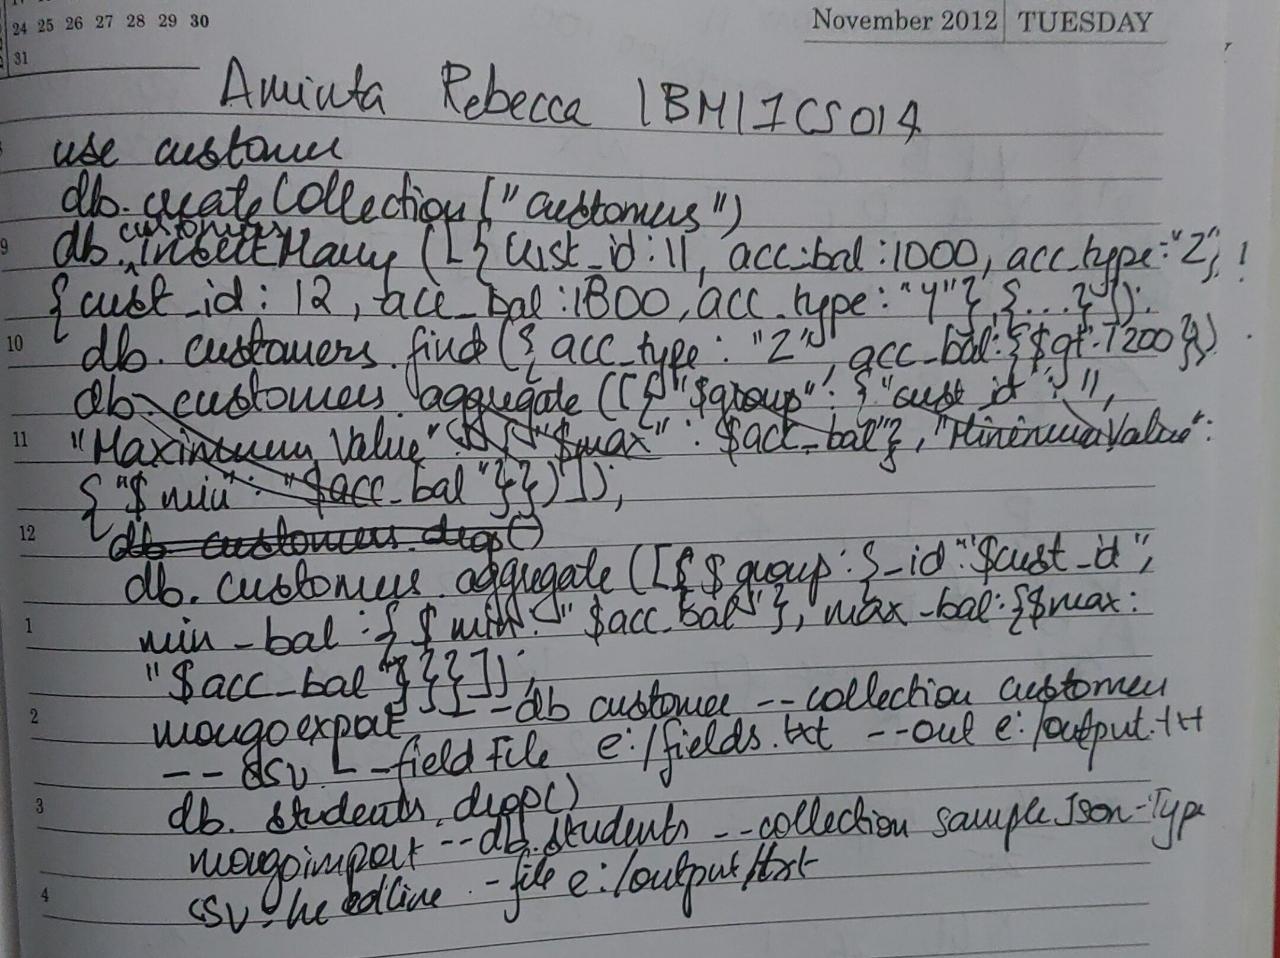 24 25 26 27 28 29 30
31
November 2012 TUESDAY
Aminta Rebecca 1BM17CS014
use customer
db.createCollection("customers")
9
customers
db.insertMany([{cust_id:11, acc_bal:1000, acc_type:"Z"},
{cust_id:12, acc_bal:1800, acc_type:"Y"},{...}]);
10
db.customers.find({acc_type:"Z", acc_bal:{$gt:1200}})
db.customers.aggregate([{"$group":{"cust_id":11,
11
"Maximum Value":{"$max":"$acc_bal"},"Minimum Value":
{"$min":"$acc_bal"}})]);
12
db.customers.drop()
db.customers.aggregate([{$group:{_id:"$cust_id",
1
min_bal:{$min:"$acc_bal"}, max_bal:{$max:
"$acc_bal"}}}]);
2
mongoexport --db customer --collection customer
--csv --fieldFile e:/fields.txt --out e:/output.txt
3
db.students.drop()
mongoimport --db.students --collection sampleJson-Type
4
csv-headline --file e:/output/txt